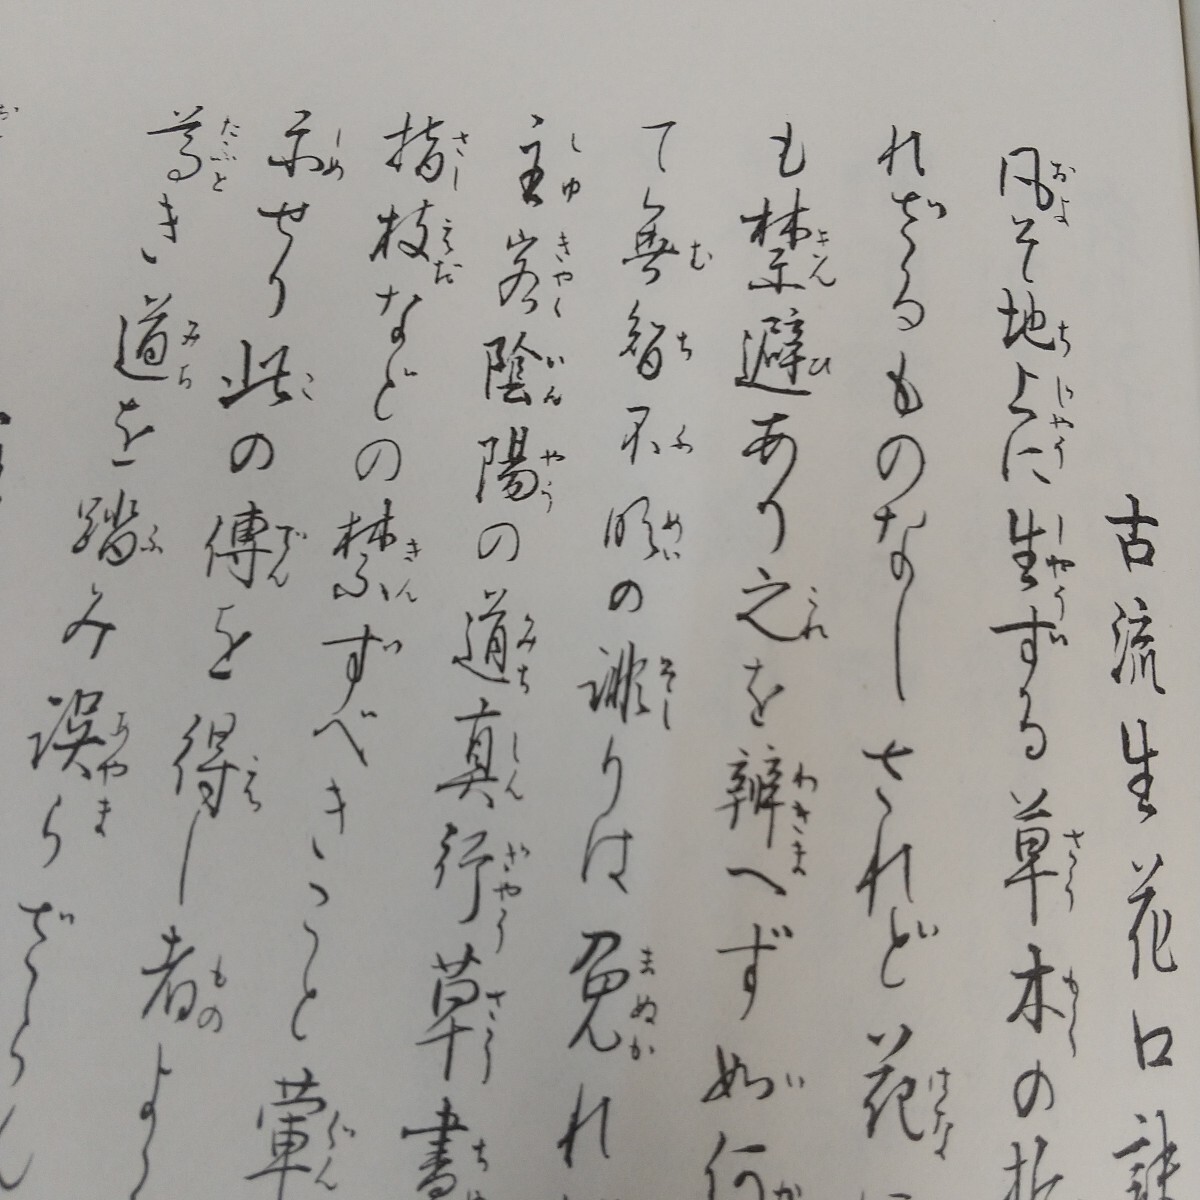 古流生花口訣
凡そ地上に生ずる草木の
れざるものなしされど花に
も禁避あり之を辨へず如何
て無智不明の謗りは免れ
主客陰陽の道真行草書
指枝などの禁ずべきこと葷
示せり此の傳を得し者よ
尊き道を踏み誤らざらん